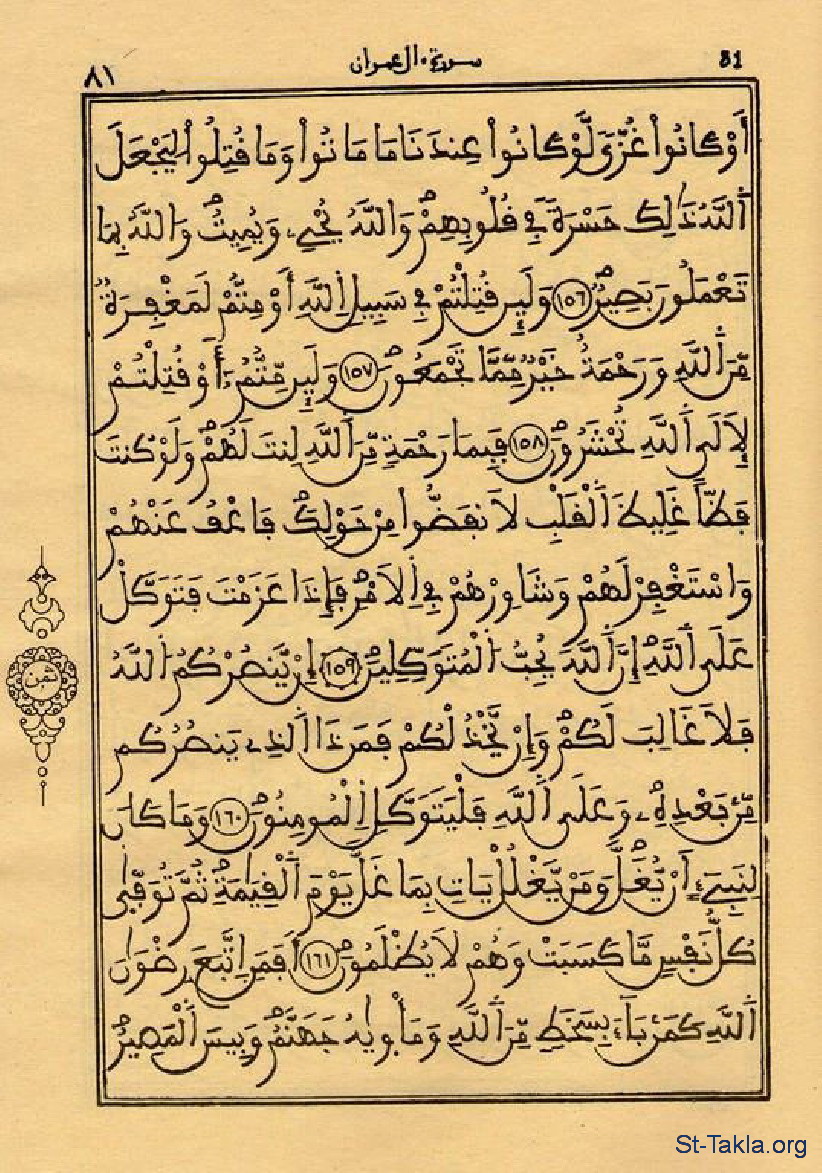 81 سورة ءال عمران ٨١
أَوْ كَانُواْ غُزّىً لَّوْ كَانُواْ عِندَنَا مَا مَاتُواْ وَمَا قُتِلُواْ لِيَجْعَلَ
اَ۬للَّهُ ذَٰلِكَ حَسْرَةً فِے قُلُوبِهِمْۖ وَاللَّهُ يُحْيِۦ وَيُمِيتُۖ وَاللَّهُ بِمَا
تَعْمَلُونَ بَصِيرٌۖ ١٥٦ وَلَئِن قُتِلْتُمْ فِے سَبِيلِ اِ۬للَّهِ أَوْ مِتُّمْ لَمَغْفِرَةٌ
مِّنَ اَ۬للَّهِ وَرَحْمَةٌ خَيْرٌ مِّمَّا تَجْمَعُونَۖ ١٥٧ وَلَئِن مِّتُّمُۥٓ أَوْ قُتِلْتُمْ
لَإِلَى اَ۬للَّهِ تُحْشَرُونَۖ ١٥٨ فَبِمَا رَحْمَةٍ مِّنَ اَ۬للَّهِ لِنتَ لَهُمْۖ وَلَوْ كُنتَ
فَظّاً غَلِيظَ اَ۬لْقَلْبِ لَانفَضُّواْ مِنْ حَوْلِكَۖ فَاعْفُ عَنْهُمْ
وَاسْتَغْفِرْ لَهُمْ وَشَاوِرْهُمْ فِے اِ۬لَامْرِۖ فَإِذَا عَزَمْتَ فَتَوَكَّلْ
عَلَى اَ۬للَّهِۖ إِنَّ اَ۬للَّهَ يُحِبُّ اُ۬لْمُتَوَكِّلِينَۖ ١٥٩ إِنْ يَّنصُرْكُمُ اُ۬للَّهُ
فَلَا غَالِبَ لَكُمْۖ وَإِنْ يَّخْذُلْكُمْ فَمَن ذَا اَ۬لذِے يَنصُرُكُم
مِّنۢ بَعْدِهِۦۖ وَعَلَى اَ۬للَّهِ فَلْيَتَوَكَّلِ اِ۬لْمُومِنُونَۖ ١٦٠ وَمَا كَانَ
لِنَبِےٓءٍ اَنْ يُّغَلَّ وَمَنْ يَّغْلُلْ يَاتِ بِمَا غَلَّ يَوْمَ اَ۬لْقِيَٰمَةِۖ ثُمَّ تُوَفّ۪يٰ
كُلُّ نَفْسٍ مَّا كَسَبَتْ وَهُمْ لَا يُظْلَمُونَۖ ١٦١ أَفَمَنِ اِ۪تَّبَعَ رِضْوَٰنَ
اَ۬للَّهِ كَمَنۢ بَآءَ بِسَخَطٍ مِّنَ اَ۬للَّهِ وَمَأْو۪يٰهُ جَهَنَّمُۖ وَبِيسَ اَ۬لْمَصِيرُۖ
ثمن
St-Takla.org